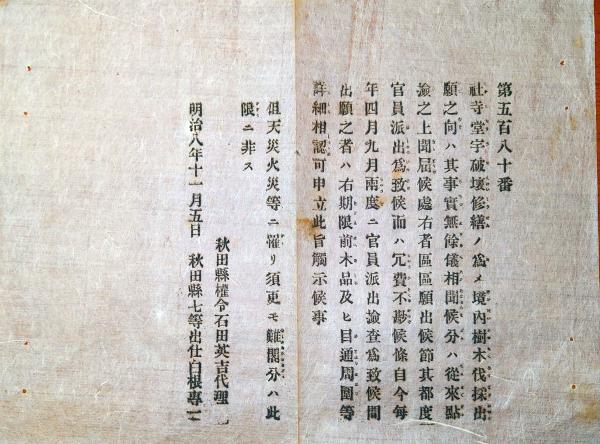 第五百八十番
社寺堂宇破壞修繕ノ爲メ境內樹木伐採出
願之向ハ其事實無餘儀相聞候分ハ從來點
撿之上聞屆候處右者區區願出候節其都度
官員派出爲致候而ハ冗費不尠候條自今每
年四月九月兩度ニ官員派出撿查爲致候間
出願之者ハ右期限前木品及ヒ目通周圍等
詳細相認可申立此旨觸示候事
但天災火災等ニ罹リ須更モ難閣分ハ此
限ニ非ス
秋田縣權令石田英吉代理
明治八年十一月五日 秋田縣七等出仕白根專一